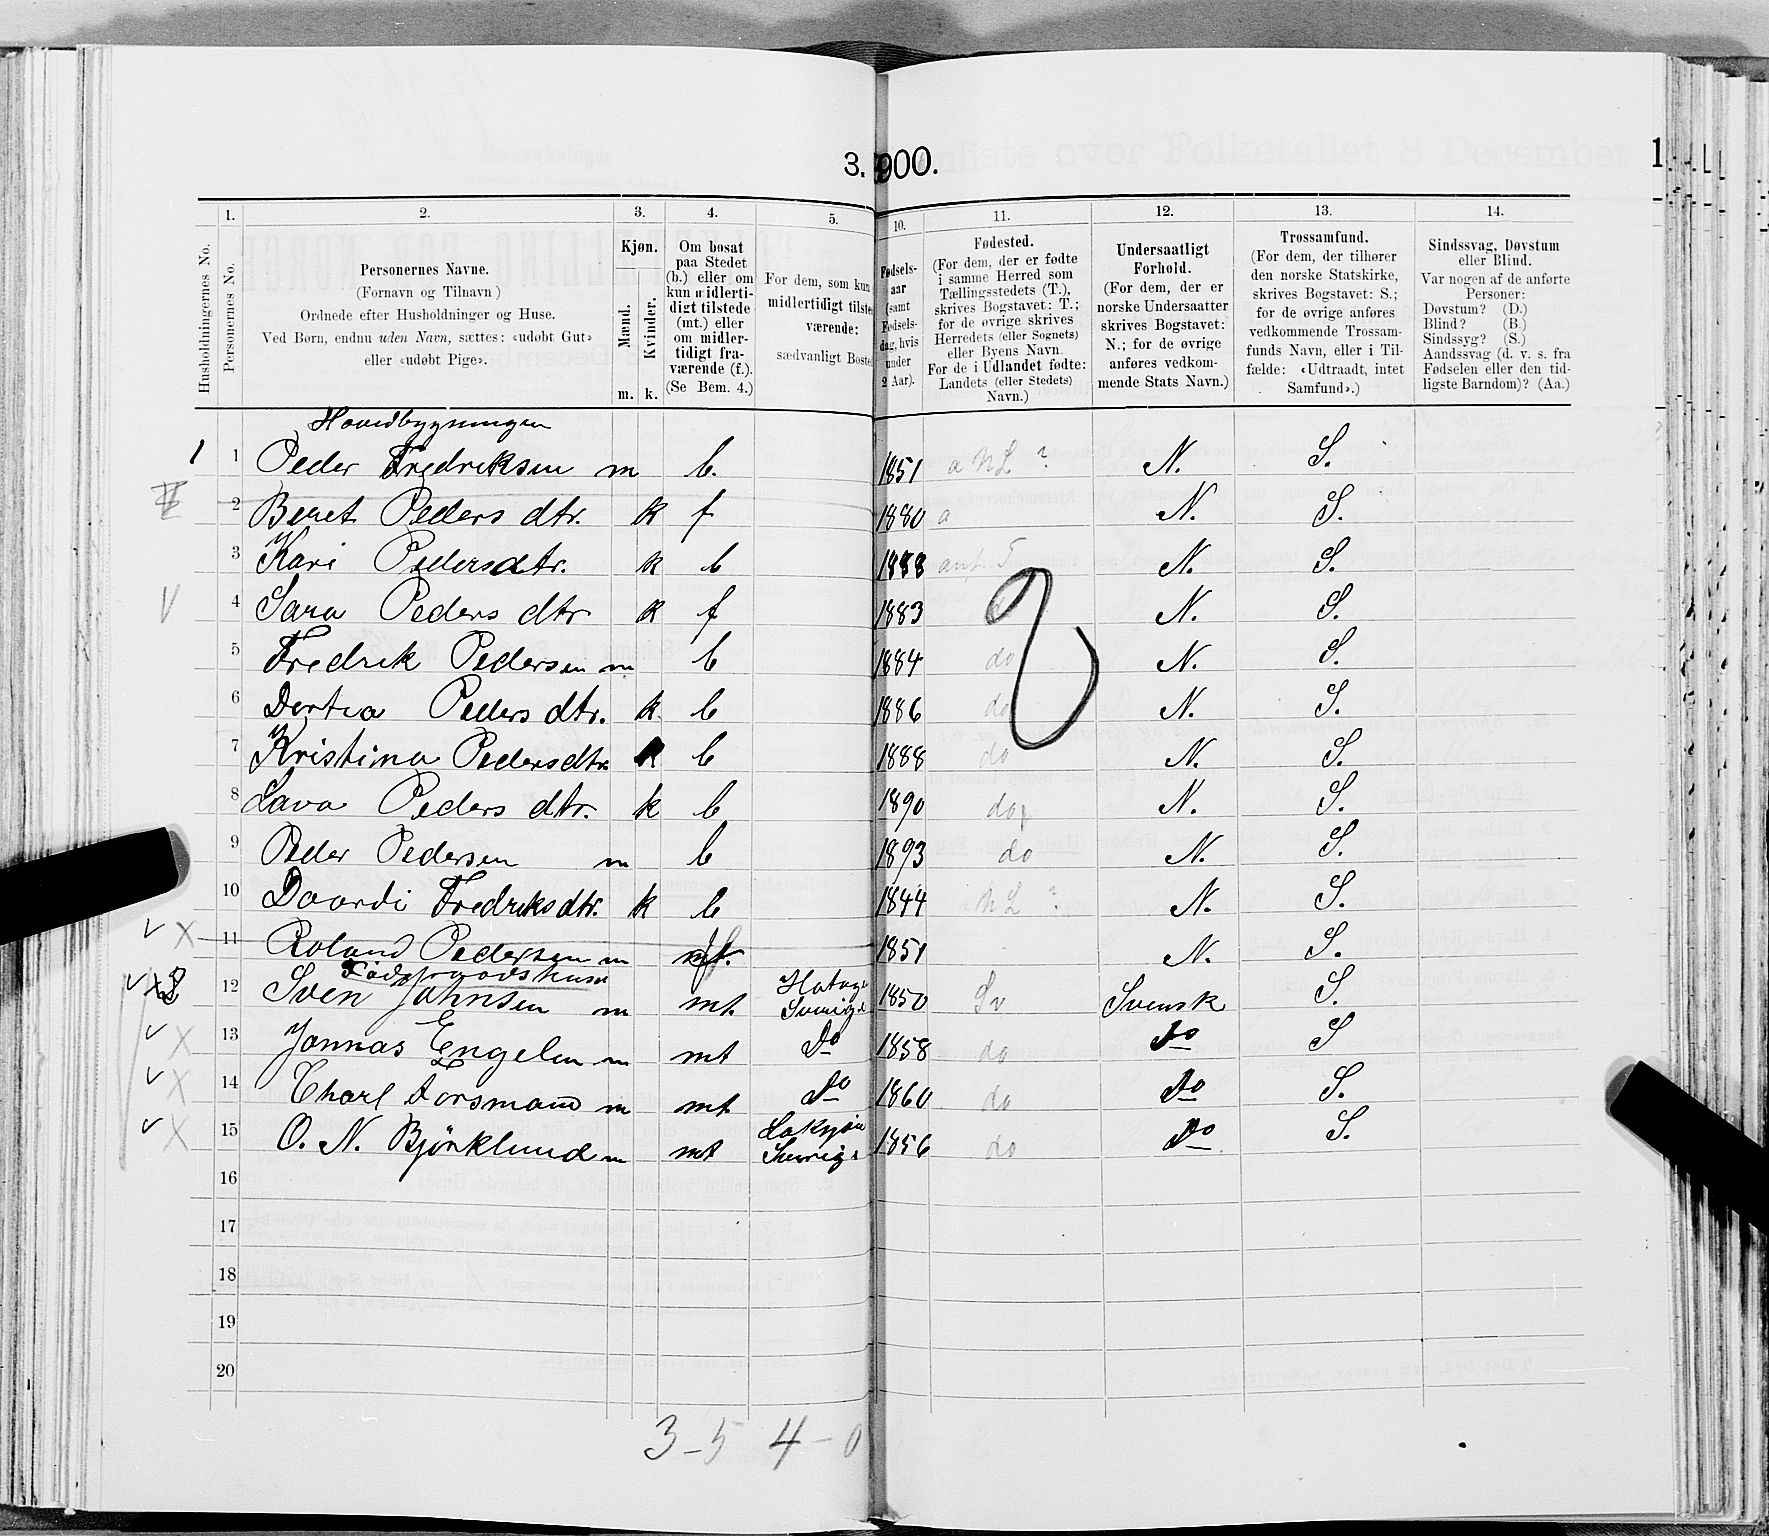 3. 900.
1
1. 2. 3. 4. 5. 10. 11. 12. 13. 14.
Husholdningernes No.
Personernes No.
Personernes Navne.
(Fornavn og Tilnavn)
Ordnede efter Husholdninger og Huse.
Ved Børn, endnu uden Navn, sættes: «udøbt Gut»
eller «udøbt Pige».
Kjøn.
Mænd.
Kvinder.
m. k.
Om bosat
paa Stedet
(b.) eller om
kun midlerti-
digt tilstede
(mt.) eller
om midler-
tidigt fra-
værende (f.).
(Se Bem. 4.)
For dem, som kun
midlertidigt tilste
værende:
sædvanligt Boste
Fødsels-
aar
(samt
Fødsels-
dag, hvis
under
2 Aar).
Fødested.
(For dem, der er fødte
i samme Herred som
Tællingsstedets (T.),
skrives Bogstavet: T.;
for de øvrige skrives
Herredets (eller Sognets)
eller Byens Navn.
For de i Udlandet fødte:
Landets (eller Stedets)
Navn.)
Undersaatligt
Forhold.
(For dem, der er
norske Undersaatter
skrives Bogstavet:
N.; for de øvrige
anføres vedkom-
mende Stats Navn.)
Trossamfund.
(For dem, der tilhører
den norske Statskirke,
skrives Bogstavet: S.;
for de øvrige anføres
vedkommende Trossam-
funds Navn, eller i Til-
fælde: «Udtraadt, intet
Samfund».)
Sindssvag, Døvstum
eller Blind.
Var nogen af de anførte
Personer:
Døvstum? (D.)
Blind? (B.)
Sindssyg? (S.)
Aandssvag (d. v. s. fra
Fødselen eller den tid-
ligste Barndom)? (Aa.)
Hovedbygningen
1 1 Peder Fredriksen m b. 1851 a NL ? N. S.
2 Beret Peders dtr. k f 1880 a N. S.
3 Kari Pedersdtr. k b 1888 ant. T N. S.
4 Sara Peders dtr k f 1883 N. S.
5 Fredrik Pedersen m b 1884 do N. S.
6 Dortea Peders dtr. k b 1886 do N. S.
7 Kristina Pedersdtr k b 1888 do N. S.
8 Lava Peders dtr. k b 1890 do N. S.
9 Peder Pedersen m b 1893 do N. S.
10 Daardi Fredriksdtr. k b 1844 NL ? N. S.
11 Roland Pedersen m 1851 N. S.
12 Sven Johnsen m mt. Sverige 1850 Sv Svensk S.
13 Jonnas Engelin m mt Do 1858 do Do S
14 Charl Forsmand m mt Do 1860 do Do S.
15 O. N. Björklund m mt Sverige 1856 do Do S.
16
17
18
19
20
3-5 4-0